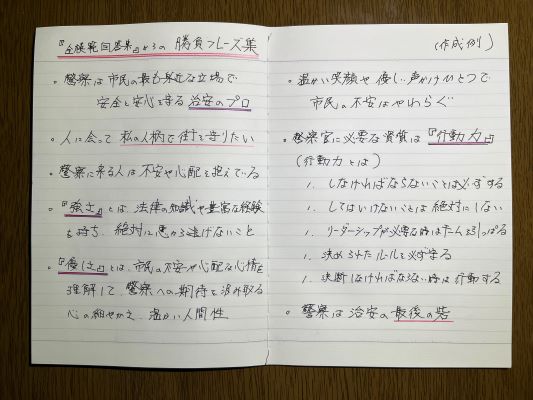 『全模範回答集』からの 勝負フレーズ集
・警察は市民の最も身近な立場で
安全と安心を守る 治安のプロ
・人に会って 私の人柄で街を守りたい
・警察に来る人は不安や心配を抱えている
・『強さ』とは、法律の知識や豊富な経験
を持ち、絶対に悪から逃げないこと
・『優しさ』とは、市民の不安や心配な心情を
理解して、警察への期待を汲み取る
心の細やかさ、温かい人間性
(作成例)
・温かい笑顔や 優しい声かけひとつで
市民の不安はやわらぐ
・警察官に必要な資質は『行動力』
(行動力とは)
1. しなければならないことは必ずする
1. してはいけないことは絶対にしない
1. リーダーシップが必要な時はたんとう引っぱる
1. 決められたルールを必ず守る
1. 決断しなければならない時は行動する
・警察は治安の最後の砦